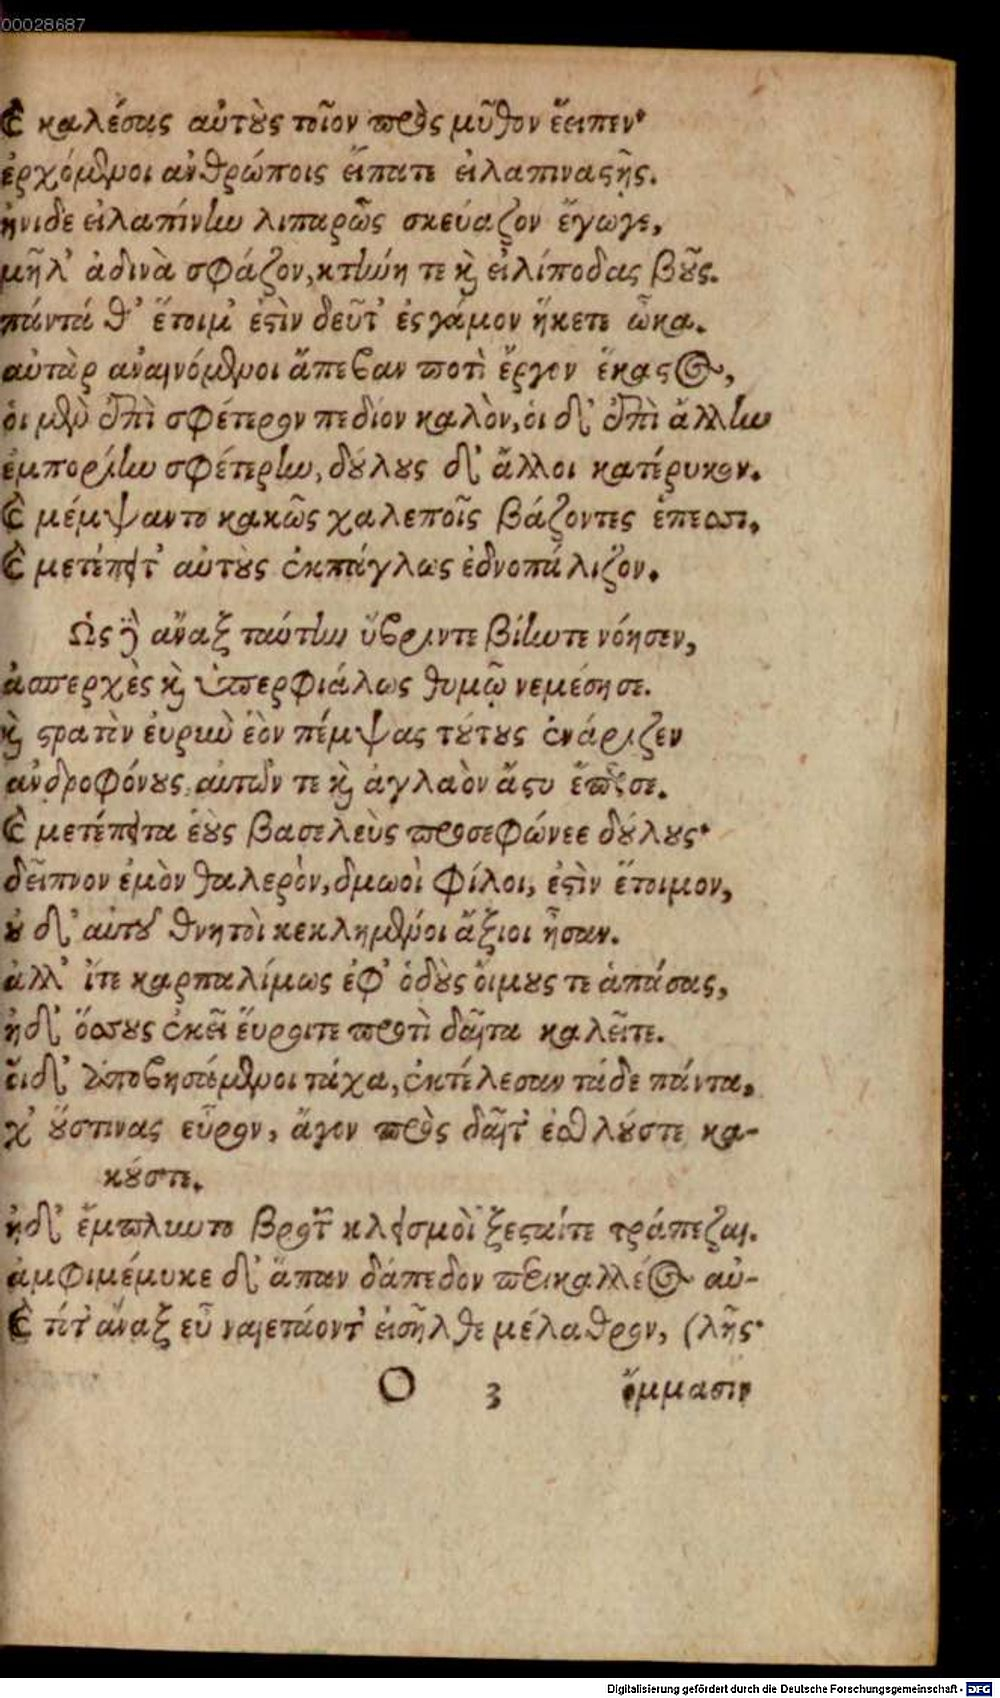 00028687
καὶ καλέσας αὐτοὺς τοῖον πρὸς μῦθον ἔειπεν·
ἐρχόμενοι ἀνθρώποις εἴπατε εἰλαπιναςῆς.
ἠνιδε εἰλαπίνην λιπαρῶς σκεύαζον ἔγωγε,
μῆλ' ἀδινὰ σφάζον, κτήνη τε καὶ εἰλίποδας βοῦς.
πάντα θ' ἕτοιμ' ἐςὶν δεῦτ' ἐς γάμον ἥκετε ὦκα.
αὐτὰρ ἀναινόμενοι ἄπεβαν ποτὶ ἔργον ἕκαςος,
οἱ μὲν ἐπὶ σφέτερον πεδίον καλὸν, οἱ δ' ἐπὶ ἄλλην
ἐμπορίην σφέτερην, δούλους δ' ἄλλοι κατέρυκον.
καὶ μέμψαντο κακῶς χαλεποῖς βάζοντες ἔπεσσι,
καὶ μετέπειτ' αὐτοὺς ἐκπάγλως ἐδνοπάλιζον.
Ὡς δὲ ἄναξ ταύτην ὕβριντε βίην τε νόησεν,
ἀσπερχὲς καὶ ὑπερφιάλως θυμῷ νεμέσησε.
καὶ ςρατὴν εὐρὺν ἑὸν πέμψας τούτους ἐνάριζεν
ἀνδροφόνους, αὐτῶν τε καὶ ἀγλαὸν ἄςυ ἔπρησε.
καὶ μετέπειτα ἑοὺς βασιλεὺς προσεφώνεε δούλους·
δεῖπνον ἐμὸν θαλερὸν, δμωοὶ φίλοι, ἐςὶν ἕτοιμον,
οὐ δ' αὐτοῦ θνητοὶ κεκλημένοι ἄξιοι ἦσαν.
ἀλλ' ἴτε καρπαλίμως ἐφ' ὁδοὺς οἴμους τε ἁπάσας,
ἠδ' ὅσσους ἐκεῖ εὕροιτε προτὶ δαῖτα καλεῖτε.
οἱ δ' ἀποβησάμενοι τάχα, ἐκτέλεσαν τάδε πάντα,
χ' οὕστινας εὗρον, ἄγον πρὸς δαῖτ' ἐσθλούστε κα-
κούστε.
ἠδ' ἔμπληντο βροτῶν κλεισμοὶ ξεςαίτε τράπεζαι.
ἀμφιμέμυκε δ' ἅπαν δάπεδον περικαλλέος αὐ-
καὶ τότ' ἄναξ εὖ ναιετάοντ' εἰσῆλθε μέλαθρον, (λῆς·
O 3 ὄμμασιν
Digitalisierung gefördert durch die Deutsche Forschungsgemeinschaft - DFG